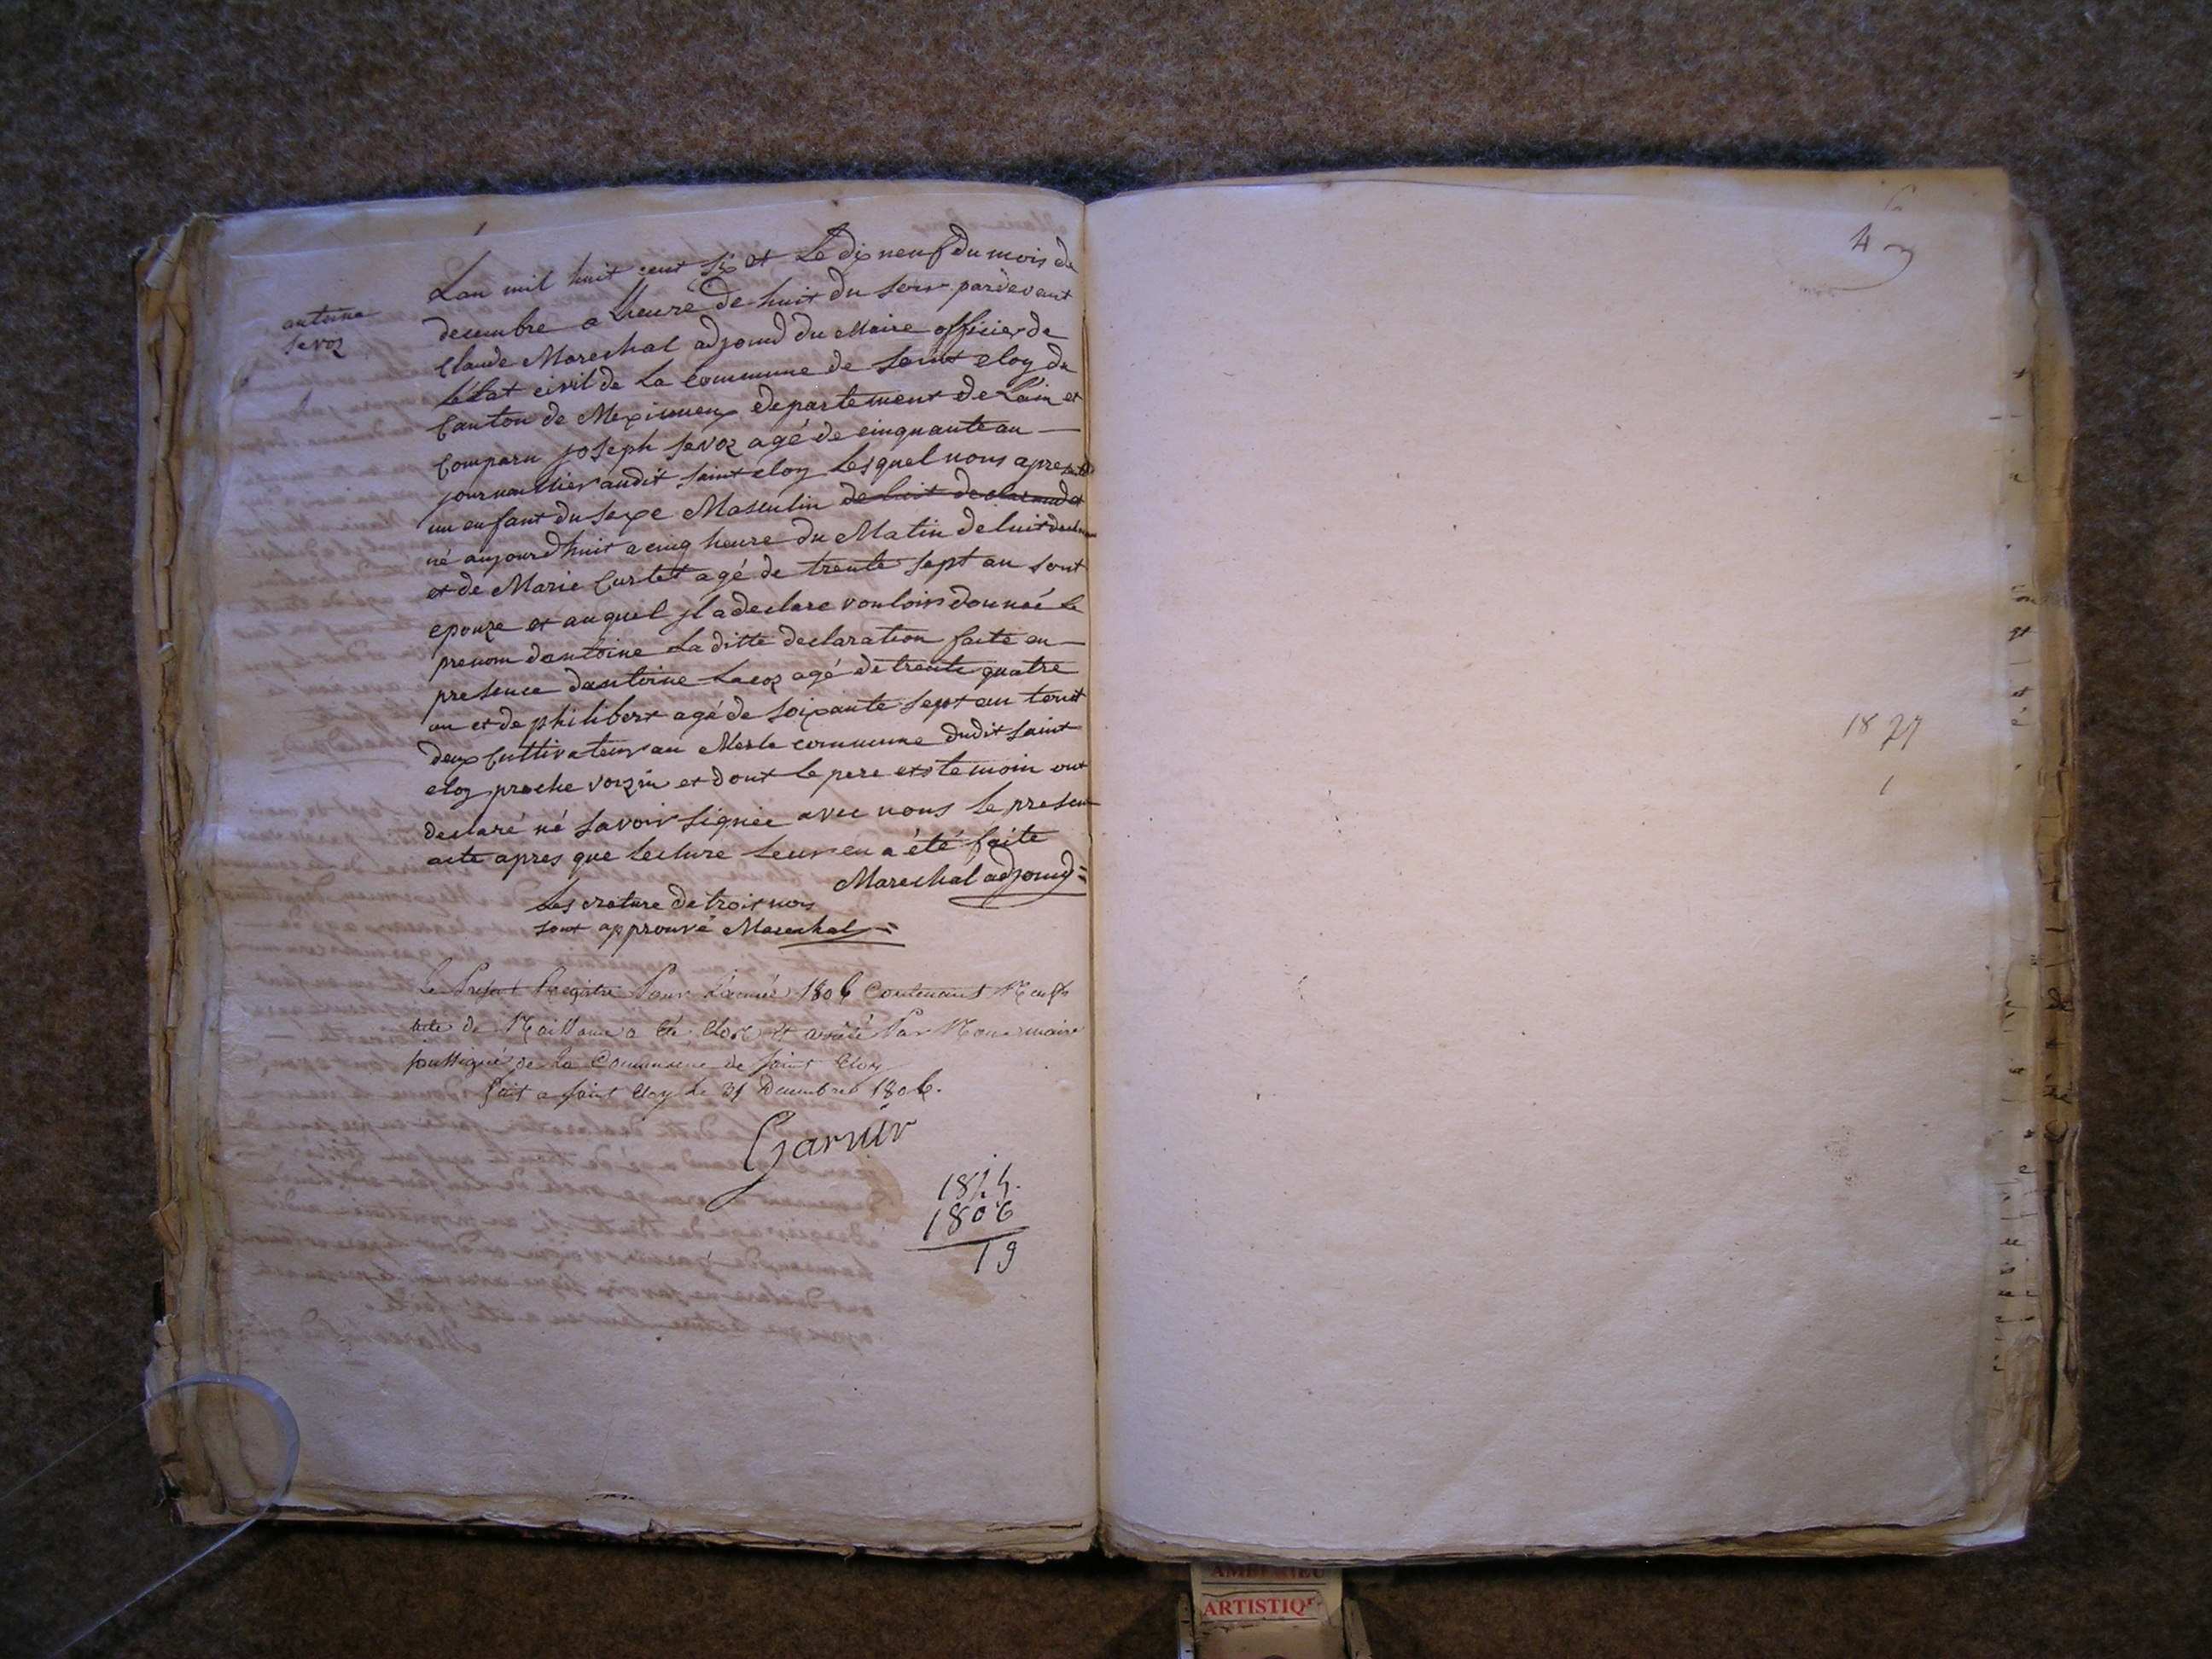 antoine
Sevoz
Lan mil huit cent six et Le dix neuf du mois de
decembre a Lheure de huit du soir pardevant
Claude Mareschal adjoind du Maire officier de
létat civil de La Commune de Saint eloy du
Canton de Meximeux departement de Lain et
Comparu joseph Sevoz agé de cinquante an
journallier audit Saint eloy Lesquel nous a presenté
un enfant du Sexe Masculin de luit declarand et
né aujourdhuit a cinq heure du Matin de luit
et de Marie Curtet agé de trente sept an sont
epouze et auquel jl a declare vouloir donnué le
prenom dantoine La ditte declaration faite en
presence dantoine Lacoz agé de trente quatre
an et de philibert agé de soixante sept an tout
deux Cultivateur au Merle commune dudit Saint
eloy proche voizin et dont le pere et temoin ont
declaré né Savoir signée avec nous le present
acte apres que lecture leur en a été faite
Mareschal adjoind
Les crature de troit mos
sont approuvé Mareschal
Le Present Registre Pour Lannée 1806 Contenant Neuf
acte de Naissance a été Clos et arrêté Par Nous maire
soussigné de la Commune de saint Eloy
fait a saint Eloy le 31 Decembre 1806.
Garnier
1806
19
4
18
1
ARTISTIQ